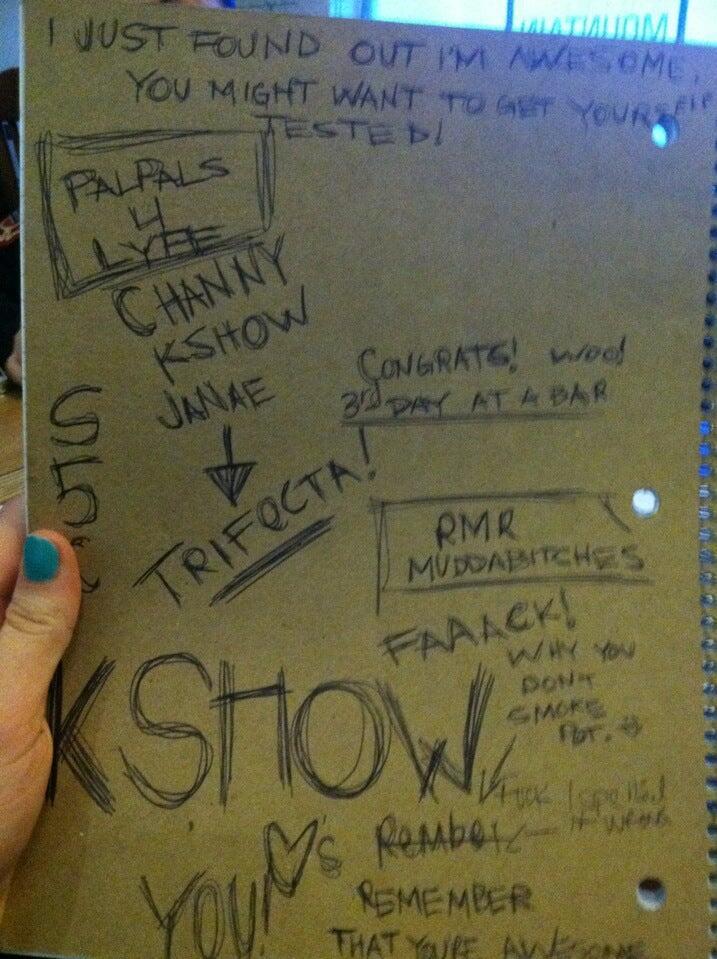 MOUNTAIN
I JUST FOUND OUT I'M AWESOME,
YOU MIGHT WANT TO GET YOURSELF
TESTED!
PALPALS
4
LYFE
CHANNY
KSHOW
JANAE
TRIFECTA!
S
5
CONGRATS! WOO!
3rd DAY AT A BAR
RMR
MUDDABITCHES
FAAACK!
WHY YOU
DON'T
SMOKE
POT.
KSHOW
♥'s
YOU!
Fuck I spelled
it wrong
Rember
REMEMBER
THAT YOU'RE AWESOME